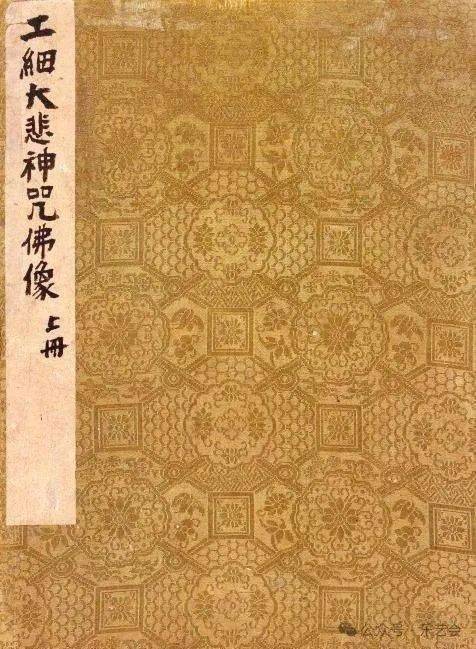 工細大悲神咒佛像
上冊
公众号·乐艺会